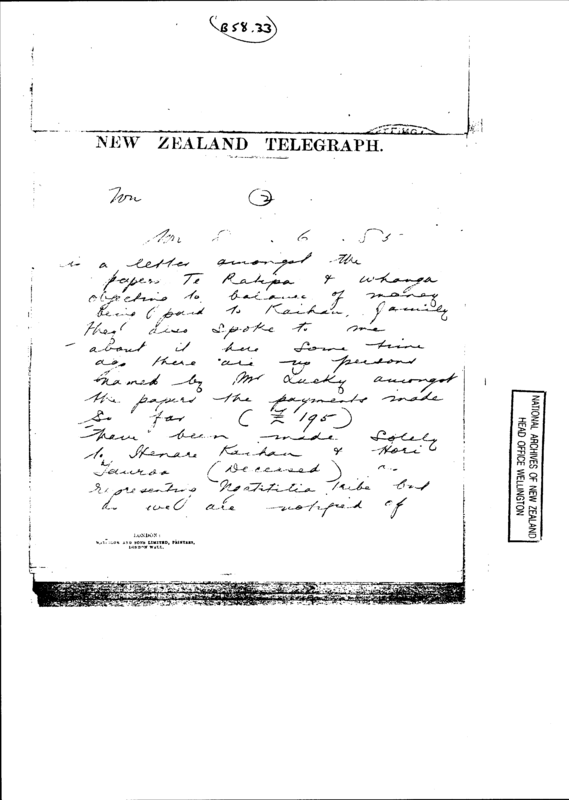 (B58.33)
NEW ZEALAND TELEGRAPH.
Wn 2
is a letter amongst the
papers Te Rakipa & Whanga
objecting to balance of money
being paid to Kaihau, family
they also spoke to me
about it here some time
ago there are no persons
named by Mr Lucky amongst
the papers the payments made
so far (£195)
have been made solely
to Henare Kaihau & Hori
Tauroa (Deceased) as
representing Ngatititia Tribe but
as we are notified of
LONDON:
AND SONS LIMITED, PRINTERS,
LONDON WALL.
NATIONAL ARCHIVES OF NEW ZEALAND
HEAD OFFICE WELLINGTON